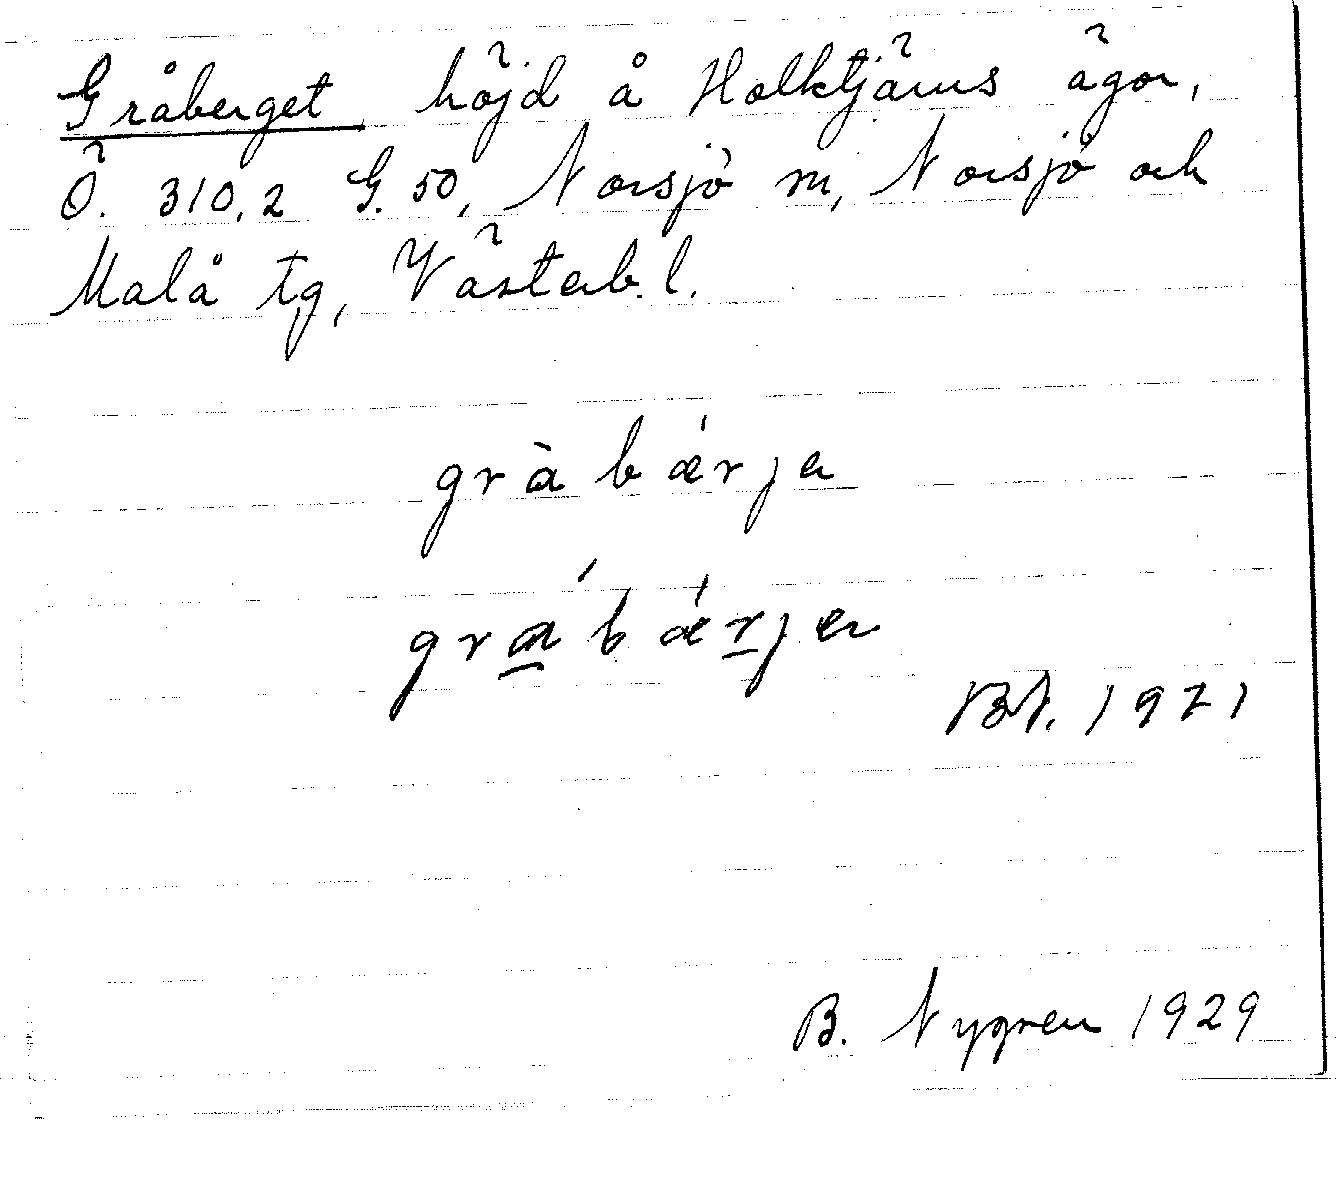 Gråberget höjd å Holktjärns ägor,
Ö. 310,2 G. 50, Norsjö m, Norsjö och
Malå tg, Västerb. l.
grà bǽrja
grá bǽrjen
1921
B. Nygren 1929